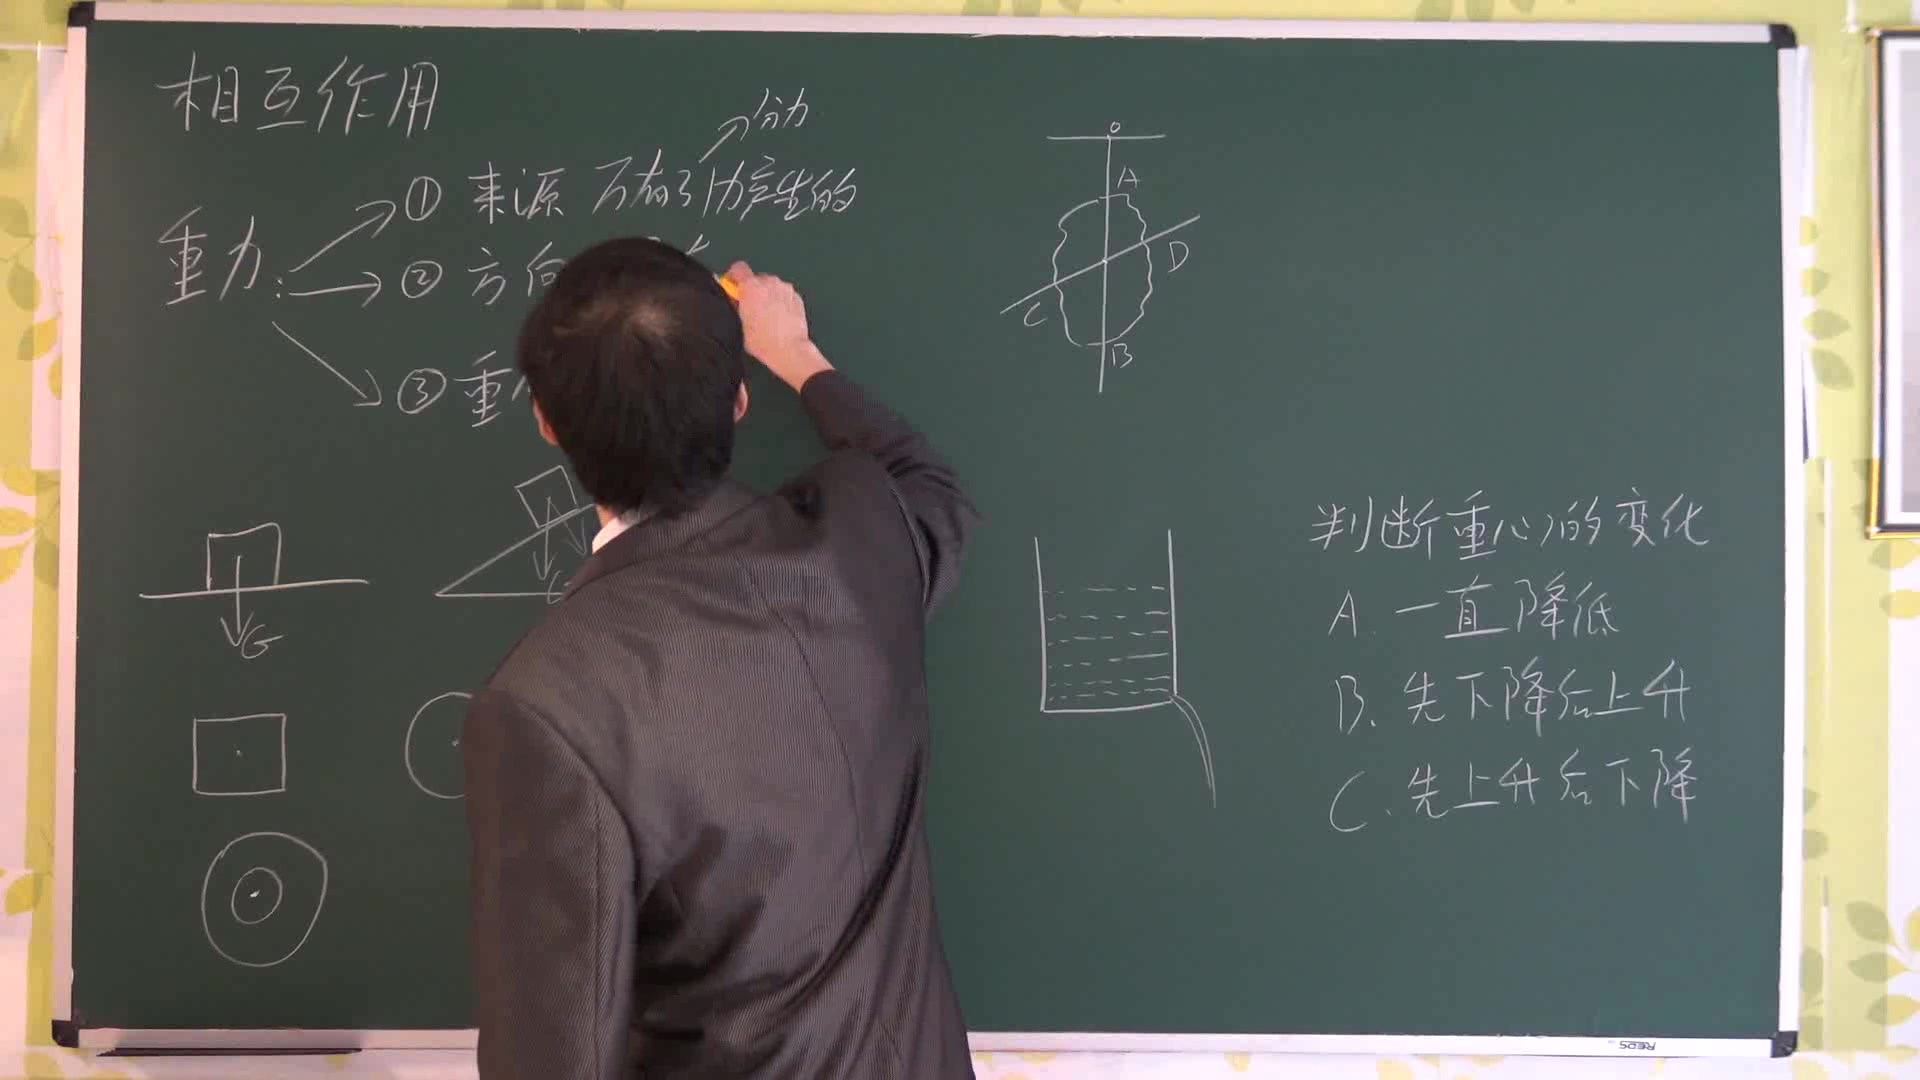 相互作用
分力
① 来源 万有引力产生的
重力:
② 方向
③ 重
O
A
D
C
B
G
判断重心的变化
A. 一直降低
B. 先下降后上升
C. 先上升后下降
REDS